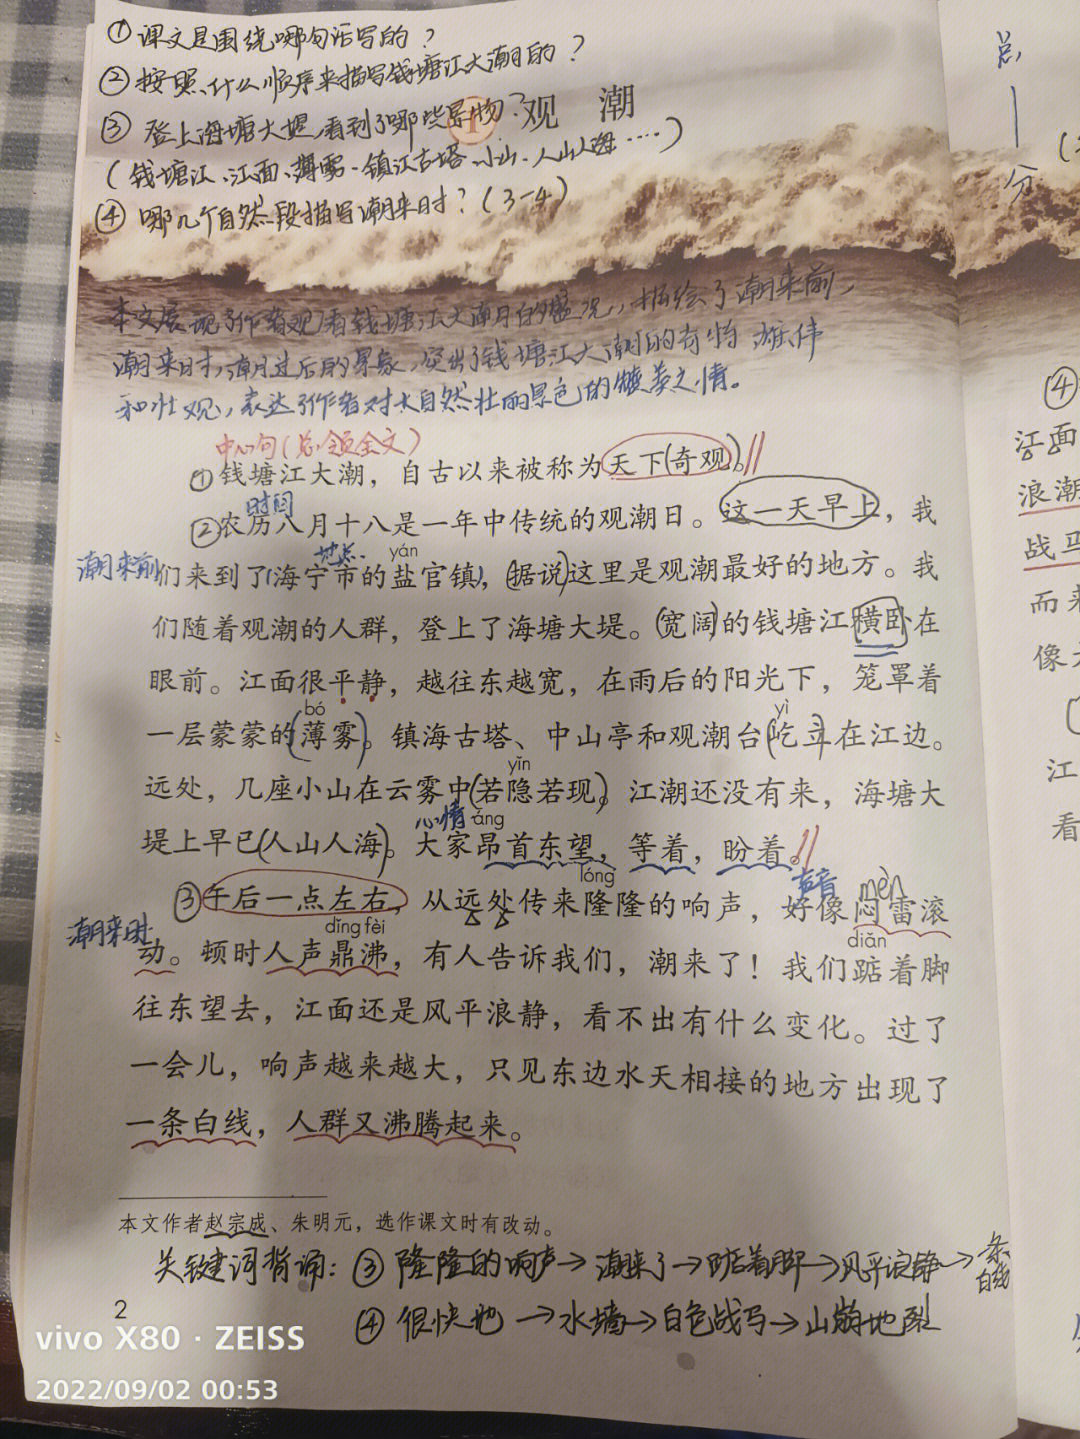 ①课文是围绕哪句话写的？
②按照什么顺序来描写钱塘江大潮的？
③登上海塘大堤,看到了哪些景物？
1 观 潮
(钱塘江、江面、薄雾、镇江古塔、小山、人山人海……)
④哪几个自然段描写潮来时？(3-4)
本文展现了作者观看钱塘江大潮的盛况,描绘了潮来前、
潮来时,潮过后的景象,突出了钱塘江大潮的奇特 雄伟
和壮观,表达了作者对大自然壮丽景色的赞美之情。
中心句(总领全文)
①钱塘江大潮，自古以来被称为天下(奇观)。
时间
②农历八月十八是一年中传统的观潮日。这一天早上，我
潮来前
地点 yán
们来到了(海宁市的盐官镇)，(据说)这里是观潮最好的地方。我
们随着观潮的人群，登上了海塘大堤。(宽阔)的钱塘江横卧在
眼前。江面很平静，越往东越宽，在雨后的阳光下，笼罩着
bó yì
一层蒙蒙的(薄雾)。镇海古塔、中山亭和观潮台(屹立)在江边。
yǐn
远处，几座小山在云雾中(若隐若现)。江潮还没有来，海塘大
心情 áng
堤上早已(人山人海)。大家昂首东望，等着，盼着。
lóng 声音 mèn
③午后一点左右，从远处传来隆隆的响声，好像闷雷滚
潮来时
dǐng fèi diǎn
动。顿时人声鼎沸，有人告诉我们，潮来了！我们踮着脚
往东望去，江面还是风平浪静，看不出有什么变化。过了
一会儿，响声越来越大，只见东边水天相接的地方出现了
一条白线，人群又沸腾起来。
本文作者赵宗成、朱明元，选作课文时有改动。
关键词背诵：③隆隆的响声→潮来了→踮着脚→风平浪静→一条白线
④很快地→水墙→白色战马→山崩地裂
2
vivo X80 · ZEISS
2022/09/02 00:53
总
分
④
江面
浪潮
战马
而来
江
看